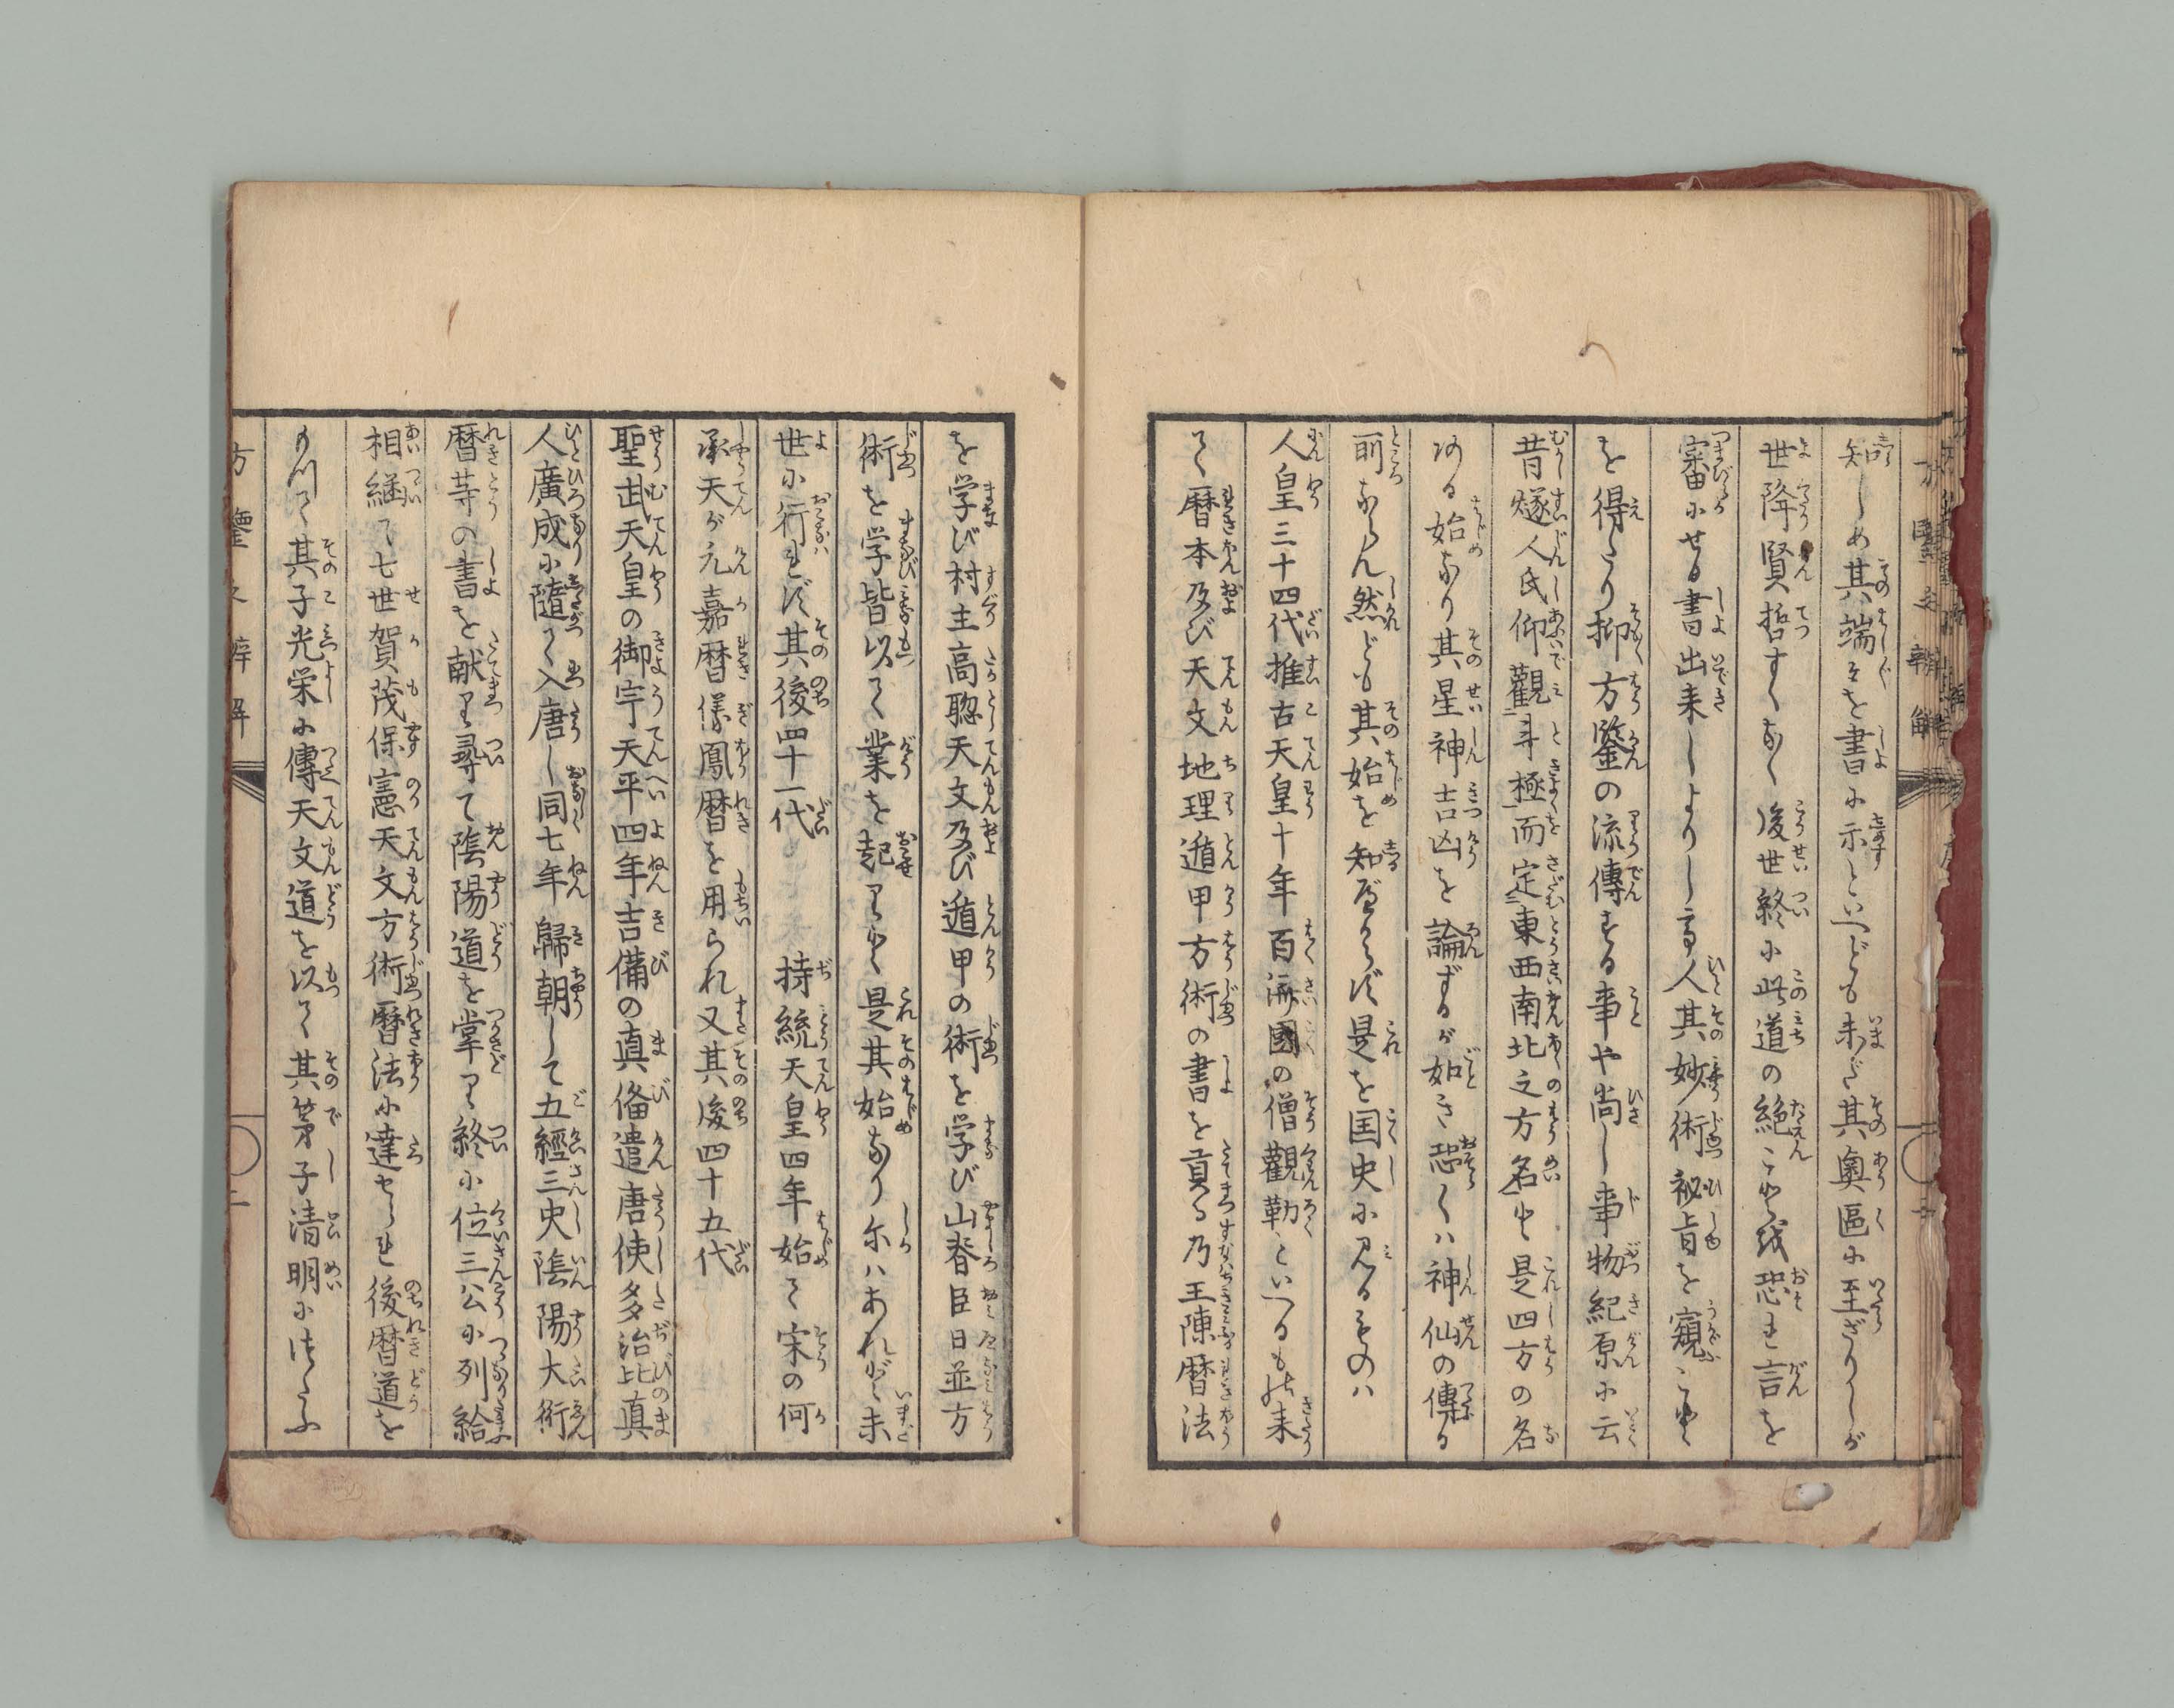 知しめ其端々を書に示といへども未だ其奧區に至ざりしが
世降賢哲すくなく後世終に此道の絶こと越恐れ言を
審にせる書出来しよりして人其妙術祕旨を窺こと
を得たり抑方鑒の流傳する事や尚し事物紀原に云
昔燧人氏仰觀二斗極一而定二東西南北之方名一と是四方の名
ある始なり其星神吉凶を論ずるが如き恐くハ神仙の傳る
所ならん然ども其始を知べからず是を国史に見るものハ
人皇三十四代推古天皇十年百濟國の僧觀勒といへるもの来
て暦本及び天文地理遁甲方術の書を貢る乃王陳暦法
を学び村主高聡天文及び遁甲の術を学び山春臣日並方
術を学皆以て業を起りと是其始なり尓ハあれど未
世に行れず其後四十一代 持統天皇四年始て宋の何
承天が元嘉暦儀鳳暦を用られ又其後四十五代
聖武天皇の御宇天平四年吉備の真備遣唐使多治比真
人廣成に隨て入唐し同七年歸朝して五經三史陰陽大衍
暦等の書を献り尋て陰陽道を掌り終に位三公に列給
相継て七世賀茂保憲天文方術暦法に達せられ後暦道を
もつて其子光栄に傳天文道を以て其弟子清明につたふ
方鑒之辨解
二